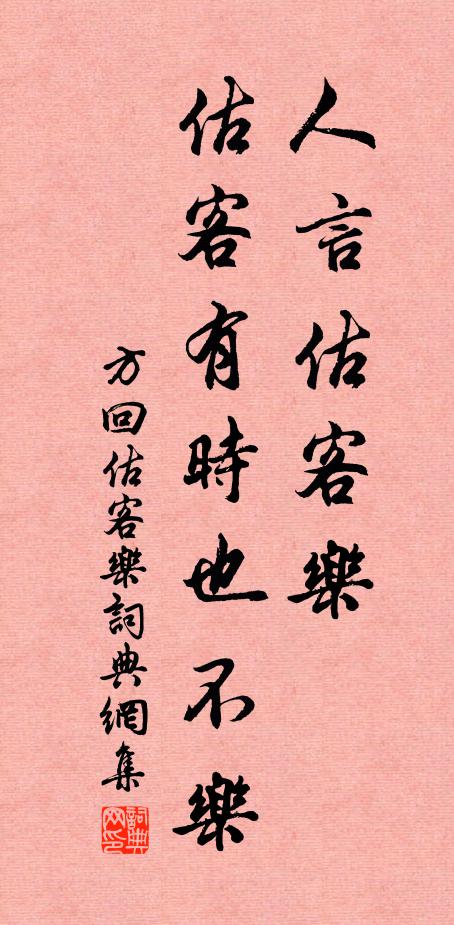 人言估客樂
估客有時也不樂
方回估客樂詞典網集
詞典网印